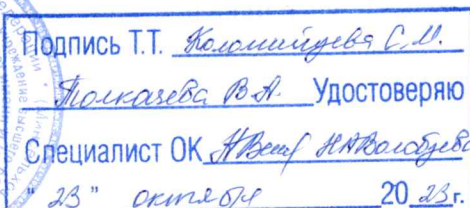 Подпись Т.Т. Коломийцева С.М.
Толкачева В.А. Удостоверяю
Специалист ОК Н.А.Волобуева
"23" октября 2023 г.